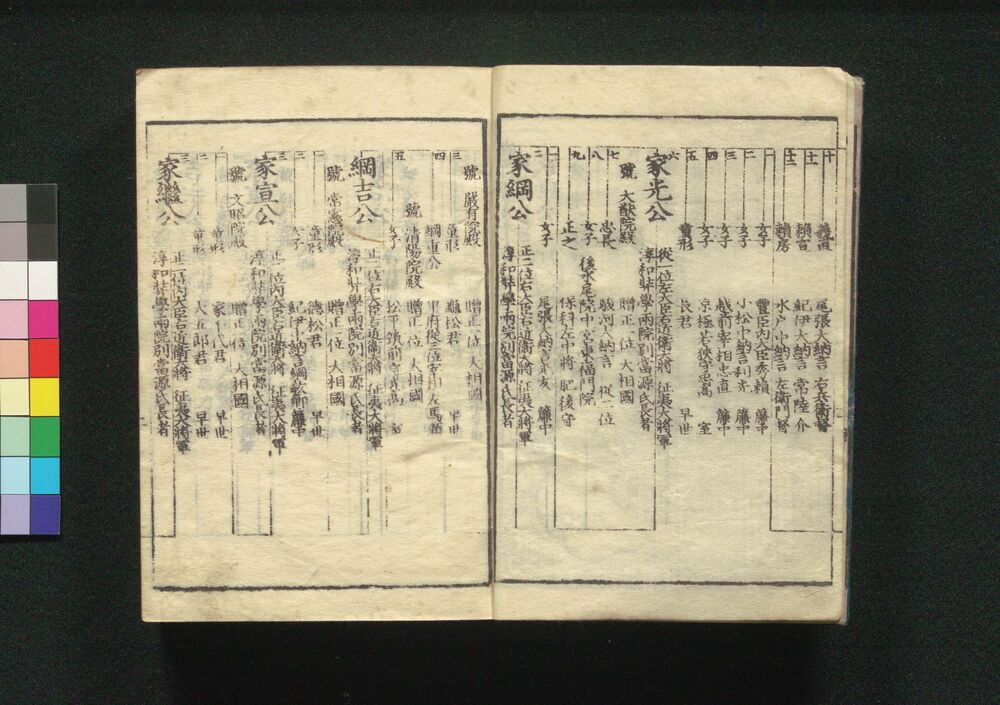 十 義直 尾張大納言 右兵衛督
十一 頼宣 紀伊大納言 常陸介
十二 頼房 水戸中納言 左衛門督
一 女子 豊臣内大臣秀頼 簾中
二 女子 小松中納言利光 簾中
三 女子 越前宰相忠直 簾中
四 女子 京極若狭守忠高 室
五 童形 長君 早世
六 家光公 從一位左大臣右近衛大將 征夷大將軍
淳和弉學兩院別當源氏長者
號 大猷院殿 贈正一位 大相國
七 忠長 駿河大納言 從二位
八 女子 後水尾院中宮東福門院
九 正之 保科左中將 肥後守
一 女子 尾張大納言光友 簾中
二 家綱公 正二位右大臣右近衛大將 征夷大將軍
淳和弉學兩院別當源氏長者
號 嚴有院殿 贈正一位 大相國
三 童形 龜松君 早世
四 綱重公
號 清陽院殿 贈正一位 大相國
五 女子
綱吉公 正二位右大臣右近衛大將 征夷大將軍
淳和弉學兩院別當源氏長者
號 常憲院殿 贈正一位 大相國
一 童形 德松君 早世
二 女子 紀伊中納言綱教卿 簾中
三 家宣公 正二位内大臣右近衛大將 征夷大將軍
淳和弉學兩院別當源氏長者
號 文昭院殿 贈正一位 大相國
一 童形 家千代君 早世
二 童形 大五郎君 早世
三 家繼公 正二位内大臣右近衛大將 征夷大將軍
淳和弉學兩院別當源氏長者